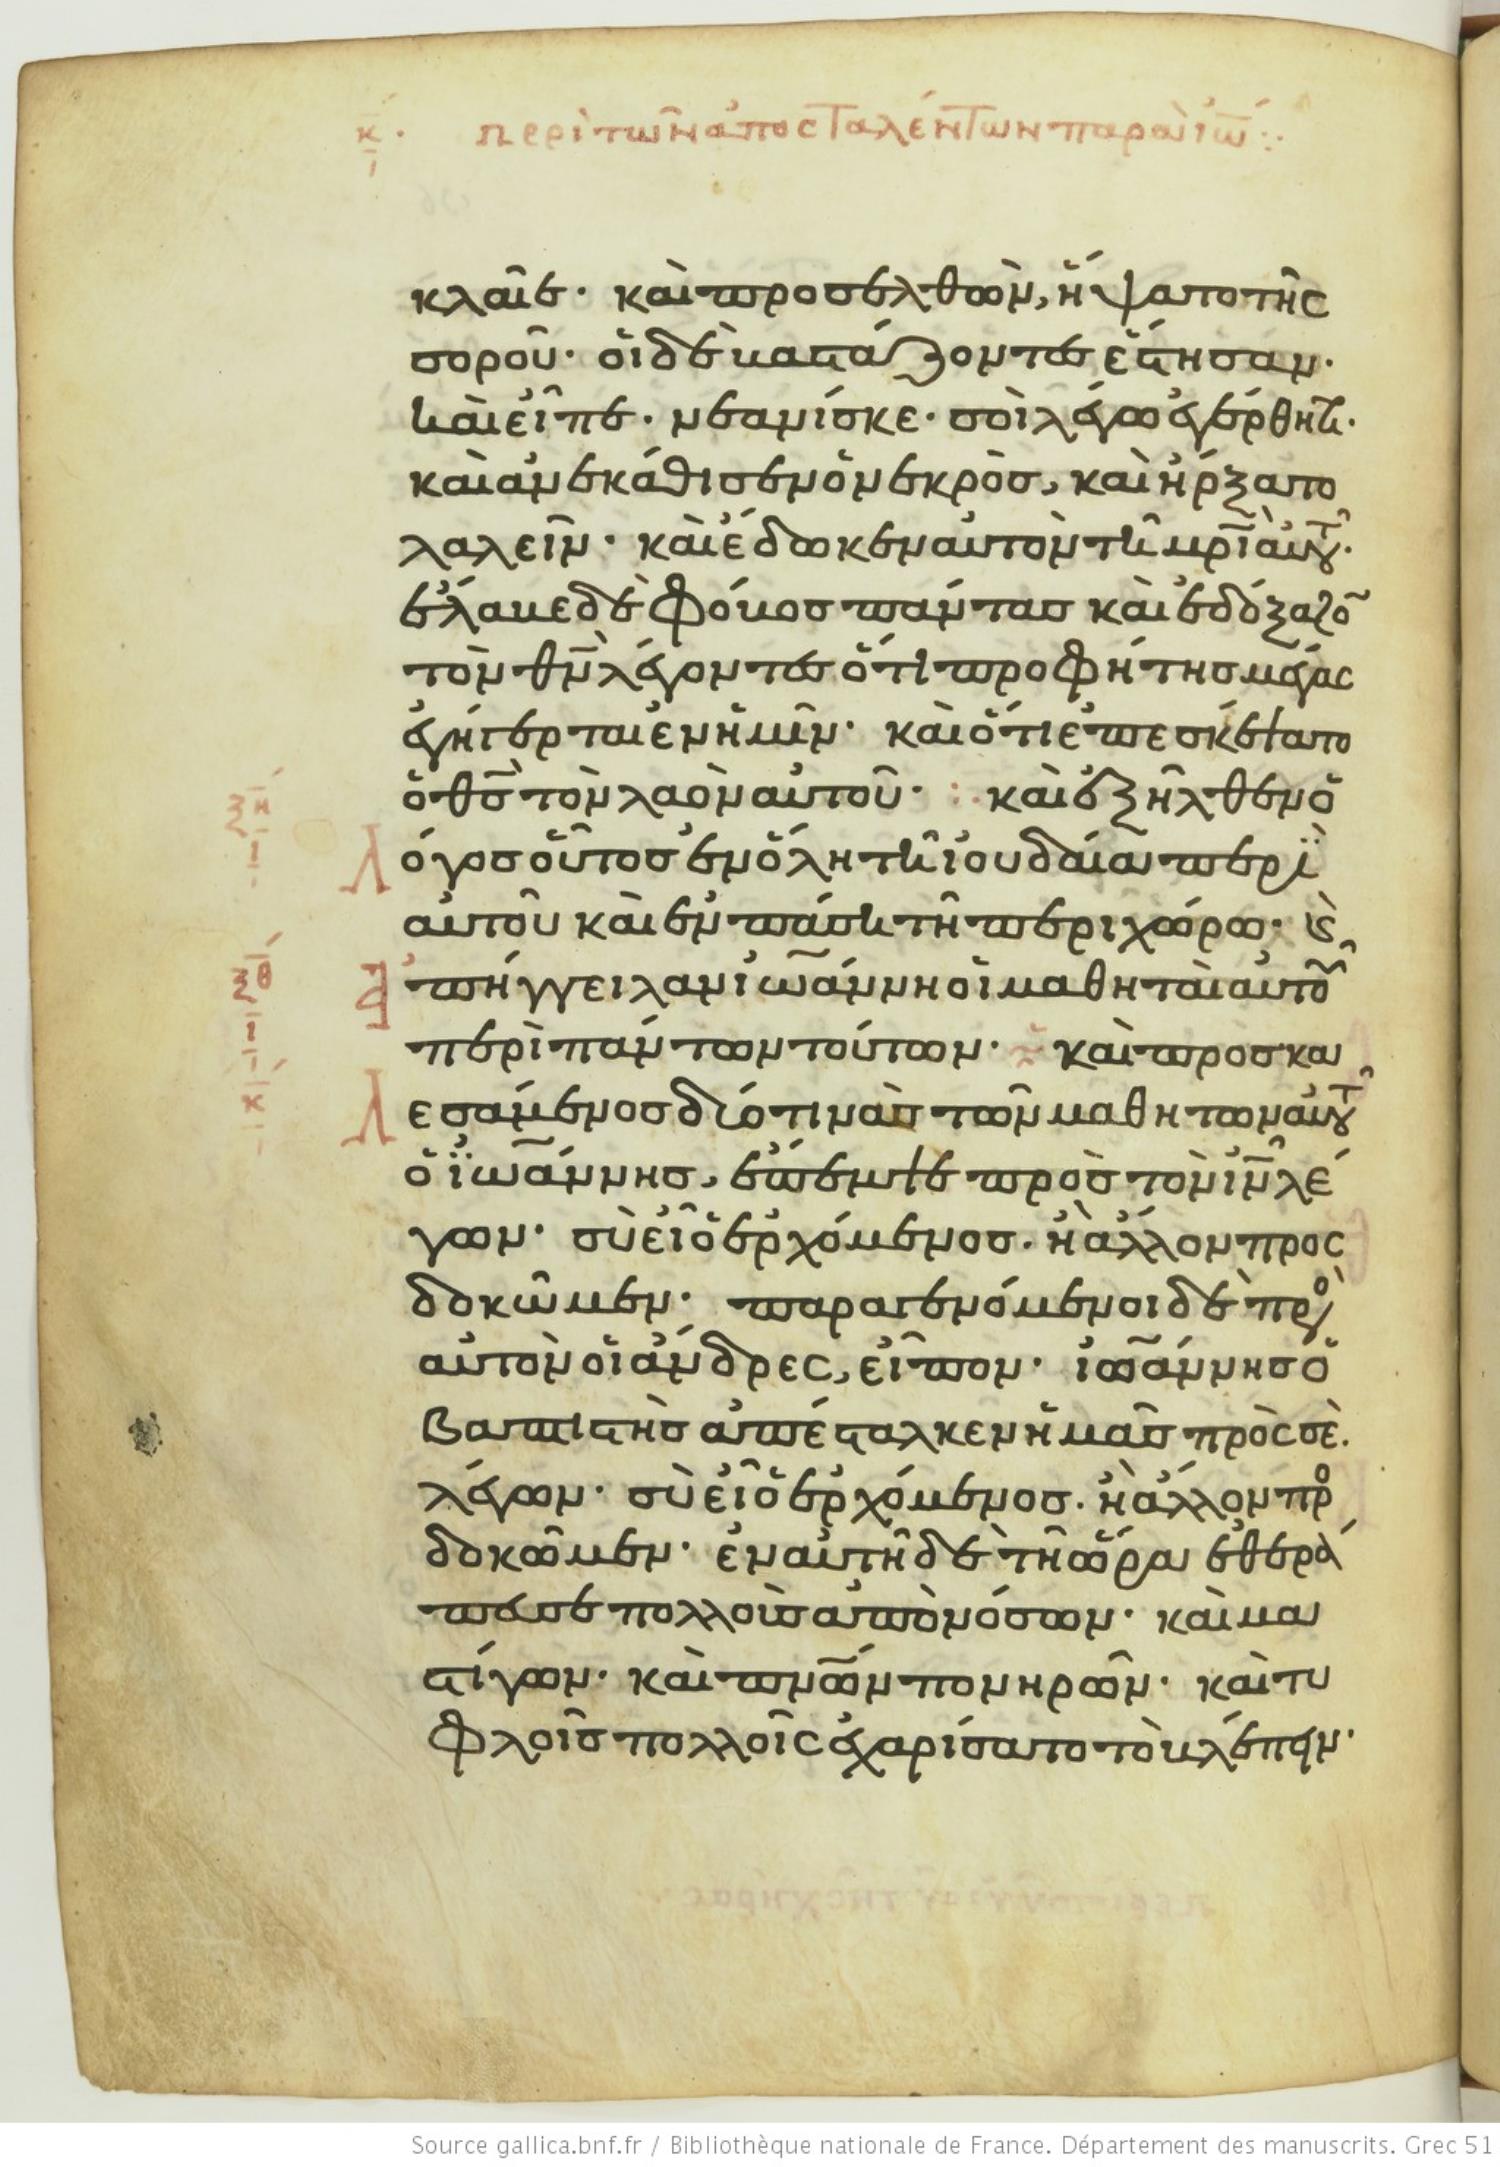 κ. περὶ τῶν ἀποσταλέντων παρὰ ἰω̅ :·
κλαῖε· καὶ προσελθὼν, ἥψατο τῆς
σοροῦ· οἱ δὲ βαστάζοντες ἔστησαν·
καὶ εἶπε· νεανίσκε· σοὶ λέγω ἐγέρθητι·
καὶ ἀνεκάθισεν ὁ νεκρὸσ, καὶ ἤρξατο
λαλεῖν· καὶ ἔδωκεν αὐτὸν τῆ μρ̅ὶ αὐτοῦ·
ἔλαβε δὲ φόβοσ πάντασ καὶ ἐδόξαζο̅
τὸν θν̅ λέγοντεσ ὅτι προφήτησ μέγας
ἐγήγερται ἐν ἡμῖν· καὶ ὅτι ἐπεσκέψατο
ὁ θσ̅ τὸν λαὸν αὐτοῦ· :· καὶ ἐξῆλθεν ὁ
ξη
ι
λόγοσ οὗτοσ ἐν ὅλη τῆ ἰουδαία περὶ
αὐτοῦ καὶ ἐν πάση τῆ περιχώρω· κ(αὶ)
ξθ
ι
κ
ἀπήγγειλαν ἰωάννη οἱ μαθηταὶ αὐτοῦ
περὶ πάντων τούτων· καὶ προσκα
λεσάμενοσ δύο τινὰσ τῶν μαθητῶν αὐτοῦ
ὁ ἰωάννησ, ἔπεμψε πρὸσ τὸν ιν̅ λέ
γων· σὺ εἶ ὁ ἐρχόμενοσ· ἢ ἄλλον προς
δοκῶμεν· παραγενόμενοι δὲ πρὸ(ς)
αὐτὸν οἱ ἄνδρες, εἶπον· ἰωάννησ ὁ
βαπτιστὴσ ἀπέσταλκεν ἡμᾶσ πρὸς σὲ·
λέγων· σὺ εἶ ὁ ἐρχόμενοσ· ἢ ἄλλον προ(σ)
δοκῶμεν· ἐν αὐτῆ δὲ τῆ ὥρα ἐθερά
πευσε πολλοὺσ ἀπὸ νόσων· καὶ μα
στίγων· καὶ πνω̅ν πονηρῶν· καὶ τυ
φλοῖσ πολλοῖς ἐχαρίσατο τὸ βλέπειν·
Source gallica.bnf.fr / Bibliothèque nationale de France. Département des manuscrits. Grec 51